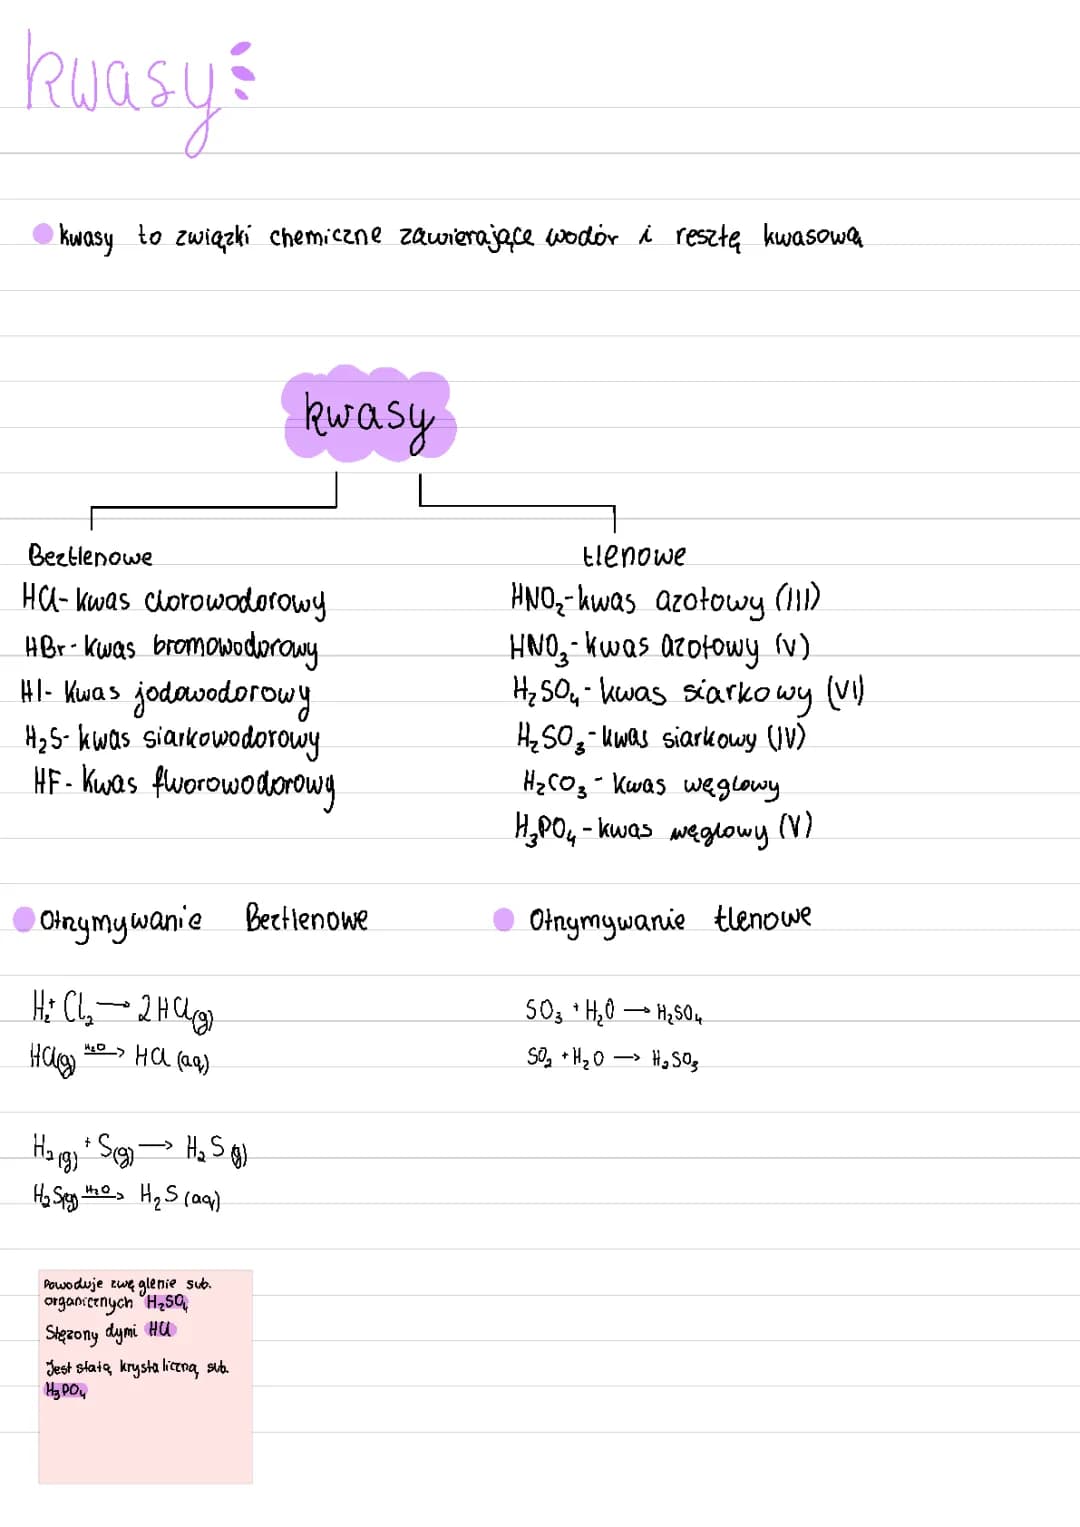 kwasy
kwasy to związki chemiczne zawierające wodór i resztę kwasową
kwasy
Beztlenowe
HCl - kwas clorowodorowy
HBr - Kwas bromowodorowy
HI - Kwas jodowodorowy
H₂S - kwas siarkowodorowy
HF - Kwas fluorowodorowy
tlenowe
HNO₂ - kwas azotowy (III)
HNO₃ - kwas azotowy (V)
H₂SO₄ - kwas siarkowy (VI)
H₂SO₃ - kwas siarkowy (IV)
H₂CO₃ - Kwas węglowy
H₃PO₄ - kwas węglowy (V)
Otrzymywanie Beztlenowe
H₂ + Cl₂ → 2HCl(g)
HCl(g) H₂O → HCl (aq)
H₂(g) + S(g) → H₂S(g)
H₂S(g) H₂O → H₂S (aq)
Otrzymywanie tlenowe
SO₃ + H₂O → H₂SO₄
SO₂ + H₂O → H₂SO₃
Powoduje zwęglenie sub.
organicznych H₂SO₄
Stężony dymi HCl
Jest stałą krystaliczną sub.
H₃PO₄